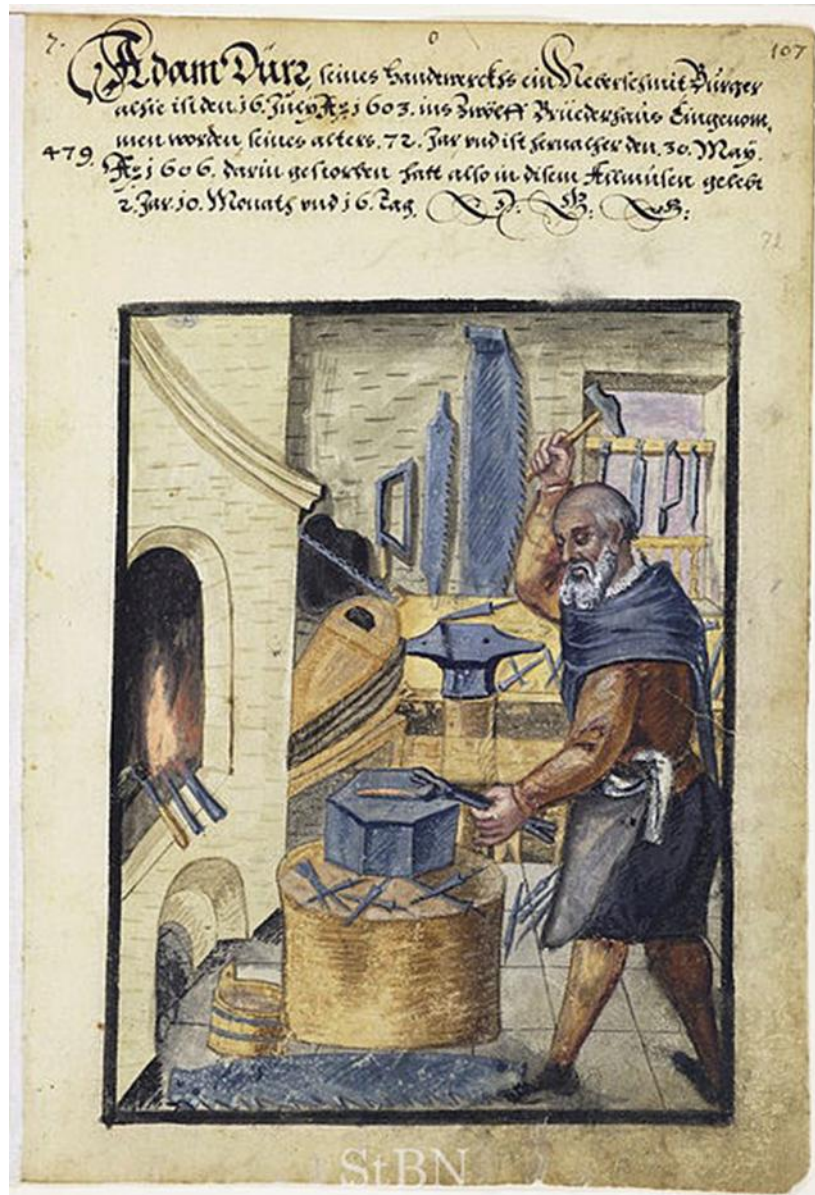 7.
0
107
Adam Dürz, seines Handtwerckhs ein Neberschmit Burger
alhie ist den 16. July Aº 1603. ins Zwölff Brüederhaus Eingenom,
men worden seines alters. 72. Jar vnd ist hernacher den. 30. May.
479. Aº 1606. darin gestorben hatt also in disem Allmusen gelebt
2. Jar. 10. Monath vnd 16. Tag.
72
StBN